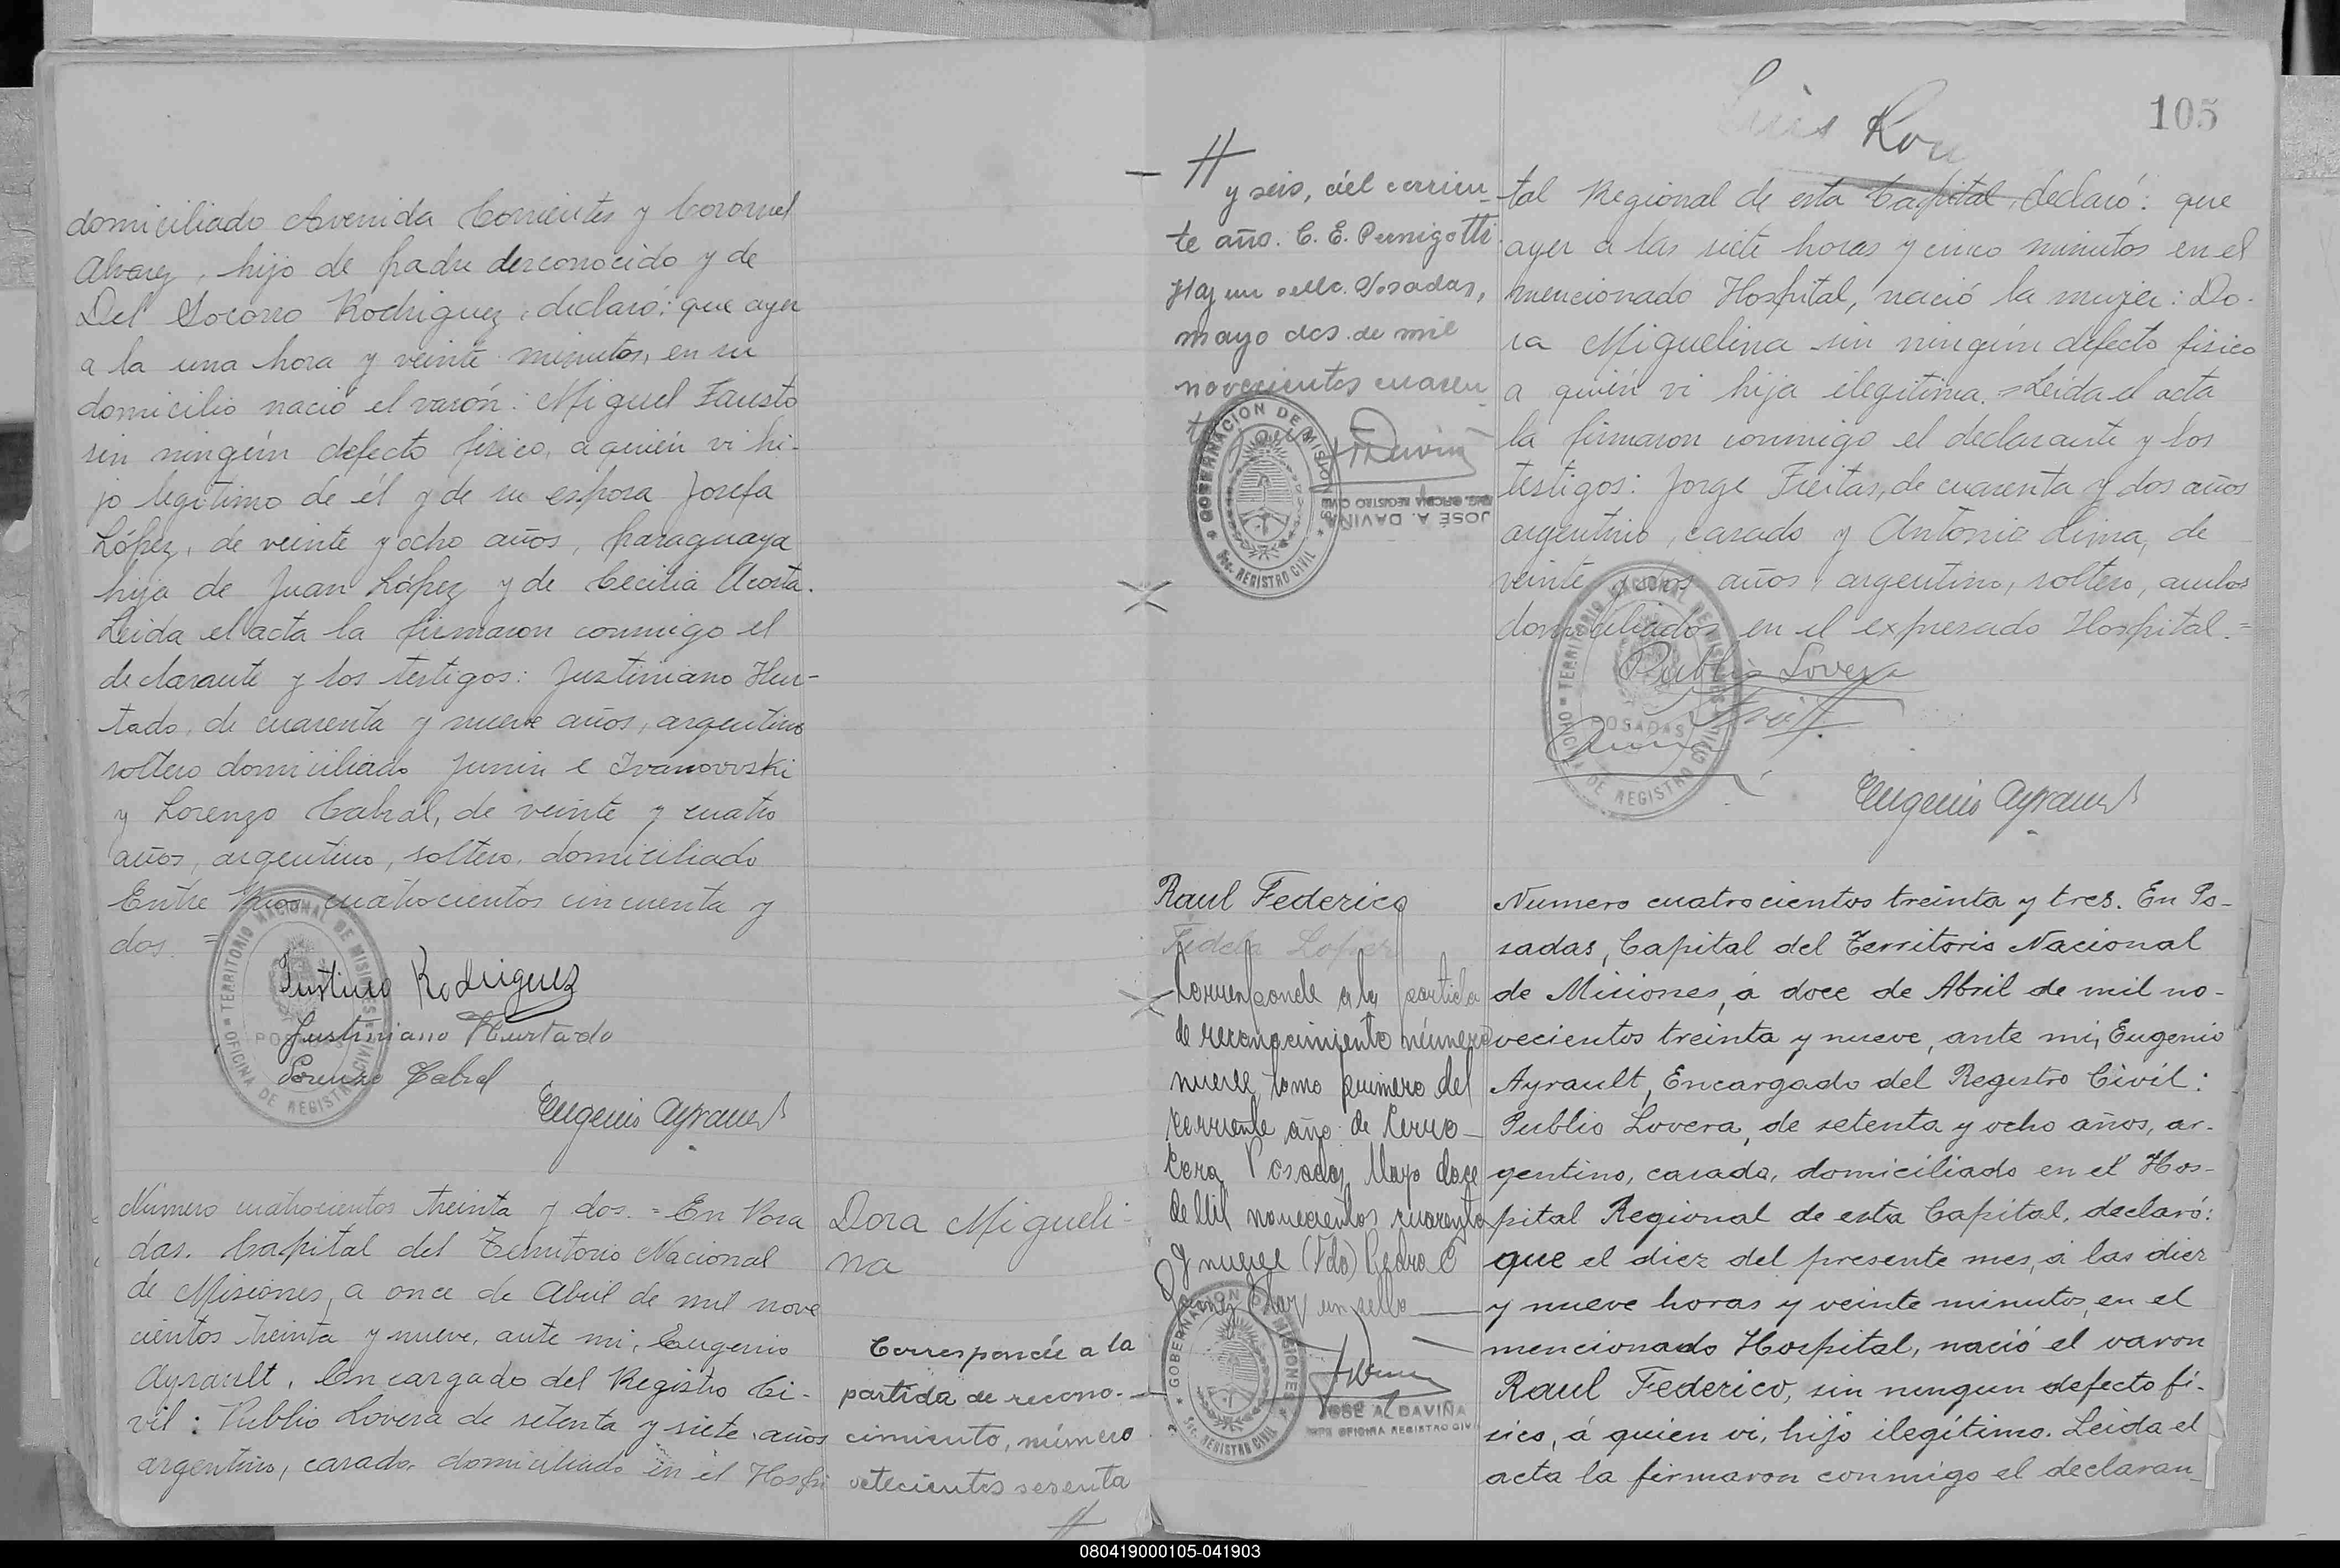 domiciliado Avenida Corrientes y Coronel
Alvarez, hijo de padre desconocido y de
Del Socorro Rodriguez, declaró: que ayer
a la una hora y veinte minutos, en su
domicilio nació el varón: Miguel Fausto
sin ningún defecto físico, a quién vi hi-
jo legítimo de él y de su esposa Josefa
López, de veinte y ocho años, paraguaya
hija de Juan López y de Cecilia Acosta.
Leida el acta la firmaron conmigo el
declarante y los testigos: Justiniano Hur-
tado, de cuarenta y nueve años, argentino
soltero domiciliado Junin e Ivanowski
y Lorenzo Cabral, de veinte y cuatro
años, argentino, soltero, domiciliado
Entre Rios cuatrocientos cincuenta y
dos. =
Justino Rodriguez
Justiniano Hurtado
Lorenzo Cabral
Eugenio Ayrault
OFICINA DE REGISTRO CIVIL TERRITORIO NACIONAL DE MISIONES
POSADAS
Número cuatrocientos treinta y dos. = En Posa
das. Capital del Territorio Nacional
de Misiones, a once de Abril de mil nove
cientos treinta y nueve, ante mi, Eugenio
Ayrault, Encargado del Registro Ci-
vil: Publio Lovera de setenta y siete años
argentino, casado, domiciliado en el Hospi
Dora Migueli-
na
Corresponde a la
partida de recono-
cimiento, número
setecientos sesenta
#
105
Luis Rou
#
y seis, del corrien-
te año. C. E. Pernigotti
Hay un sello. Posadas,
mayo dos de mil
novecientos cuaren
GOBERNACION DE MISIONES
Sec. REGISTRO CIVIL
JOSÉ A. DAVIÑA
ENC. OFICINA REGISTRO CIVIL
tal Regional de esta Capital, declaró: que
ayer a las siete horas y cinco minutos en el
mencionado Hospital, nació la mujer: Do-
ra Miguelina sin ningún defecto físico
a quién vi hija ilegítima. = Leida el acta
la firmaron conmigo el declarante y los
testigos: Jorge Freitas, de cuarenta y dos años
argentino, casado y Antonio Lima, de
veinte y dos años, argentino, soltero, ambos
domiciliados en el expresado Hospital. =
Publio Lovera
Eugenio Ayrault
OFICINA DE REGISTRO CIVIL TERRITORIO NACIONAL DE MISIONES
POSADAS
Raul Federico
Fidela Lopez
Corresponde a la partida
de reconocimiento número
nueve, tomo primero del
corriente año de Cerro
Cora Posadas, Mayo doce
de Mil novecientos cuarenta
y nueve (Fdo) Pedro C
Gomez Hay un sello
GOBERNACION DE MISIONES
Sec. REGISTRO CIVIL
JOSÉ A. DAVIÑA
OFICINA REGISTRO CIVIL
Numero cuatrocientos treinta y tres. En Po-
sadas, Capital del Territorio Nacional
de Misiones, á doce de Abril de mil no-
vecientos treinta y nueve, ante mi, Eugenio
Ayrault, Encargado del Registro Civil:
Publio Lovera, de setenta y ocho años, ar-
gentino, casado, domiciliado en el Hos-
pital Regional de esta Capital, declaró:
que el diez del presente mes, á las diez
y nueve horas y veinte minutos, en el
mencionado Hospital, nació el varon
Raul Federico, sin ningun defecto fí-
sico, á quien vi, hijo ilegítimo. Leida el
acta la firmaron conmigo el declaran-
080419000105-041903